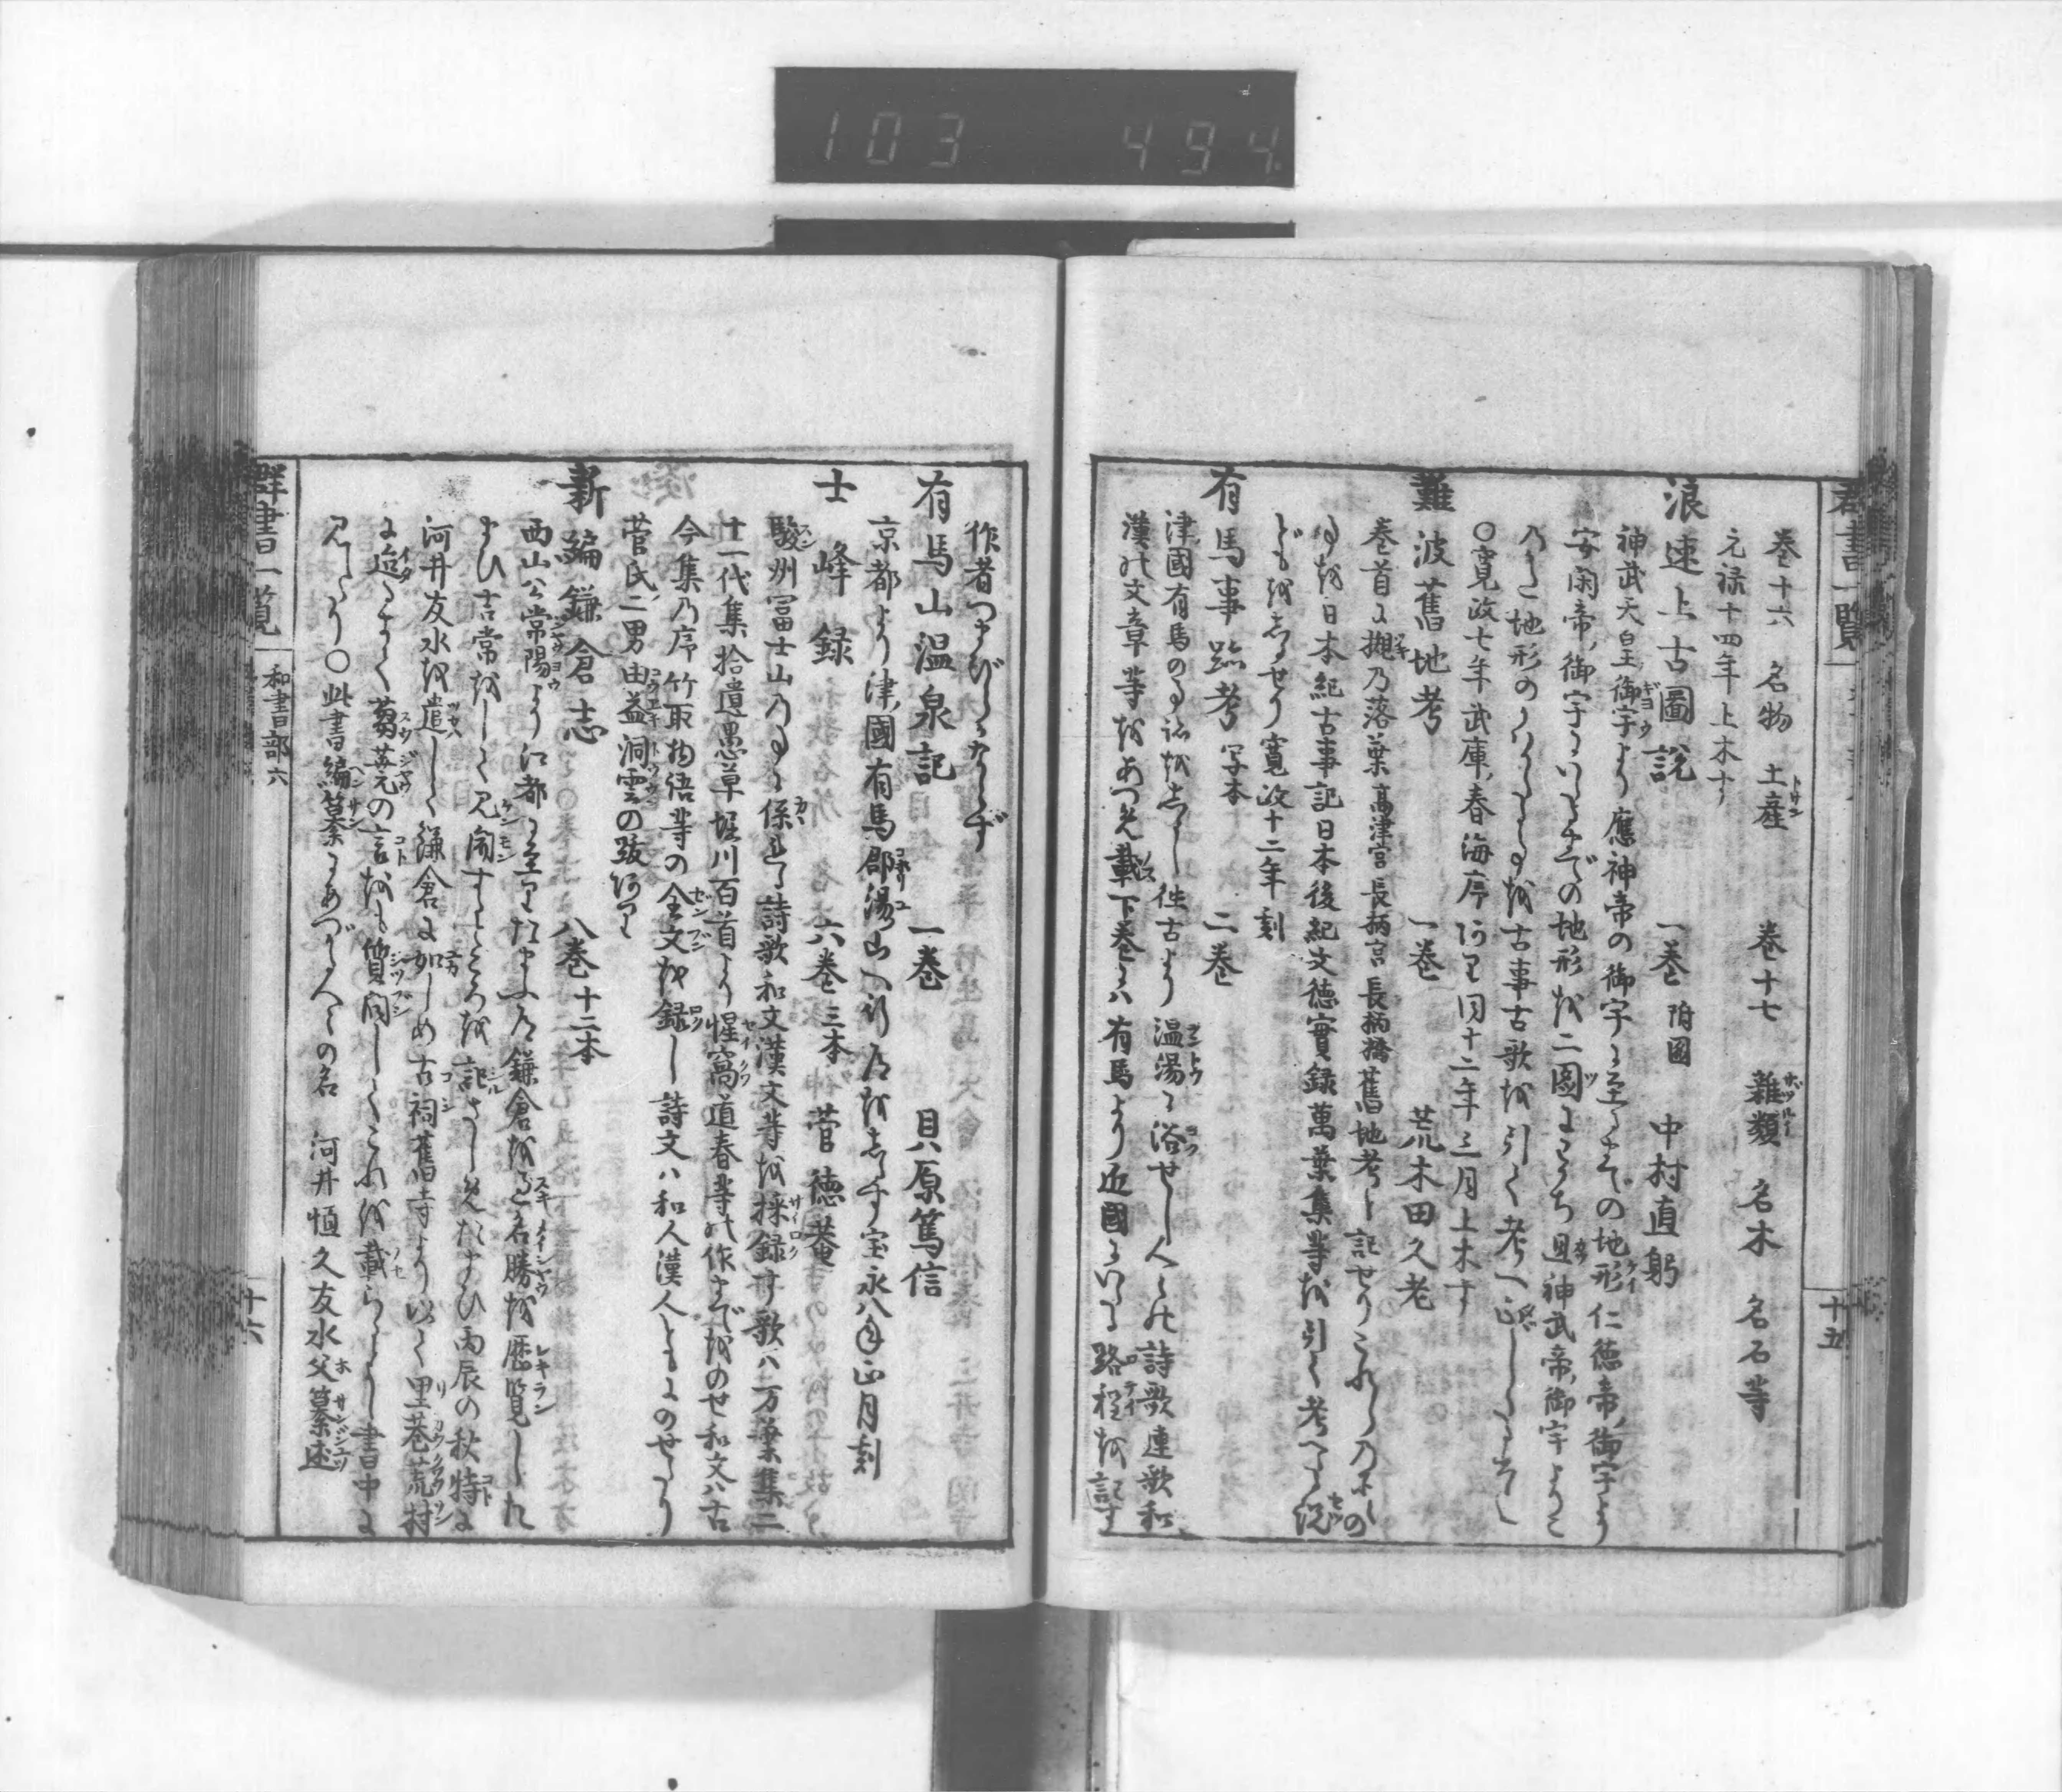 103 494
群書一覽
十五
巻十六 名物 土産 巻十七 雜類 名木 名石等
元禄十四年上木す
浪速上古圖説 一巻 附圖 中村直躬
神武天皇御宇より應神帝の御宇に至るまでの地形仁徳帝御宇より
安閑帝御宇にいたるまでの地形を二圖にわかち且神武帝御宇よりこ
のかた地形のうつりかはりし事を古事古歌を引て考へ
〇寛政七年武庫春海序あり同十二年三月上木す
難波舊地考 一巻 荒木田久老
巻首に掘乃落葉高津宮長柄宮長柄橋舊地考と記せりこれらの
事を日本紀古事記日本後紀文徳實録萬葉集等を引て考へたる説
どもをしるせり寛政十二年刻
有馬事跡考 写本 二巻
津國有馬の事跡をしるし往古より温湯に浴せし人々の詩歌連歌和
漢の文章等をあつめ載下巻には有馬より近國にいたる路程を記す
作者つまびらかならず
有馬山温泉記 一巻 貝原篤信
京都より津國有馬郡湯山へ行道をしるす宝永八年正月刻
士峰録 六巻三本 菅徳菴
駿州冨士山乃事に係る詩歌和文漢文等を採録す歌ハ万葉集二
十一代集拾遺愚草堀川百首より惺窩道春等の作までをのせ和文ハ古
今集乃序竹取物語等の全文を録し詩文ハ和人漢人ともにのせたり
菅氏二男由益洞雲の跋あり
新編鎌倉志 八巻十二本
西山公常陽より江都に至りたまふ道鎌倉を過名勝を歴覧し九
まひ吉常をして見聞するところを記さしめたまひ丙辰の秋特に
河井友水を遣して鎌倉に如しめ古祠舊寺より以て里巷荒村
に迨るまて蒭蕘の言をも質問してこれを載らる書中に
見えたり〇此書編纂にあづかる人々の名 河井恒久友水父纂述
群書一覧
和書部六
十六